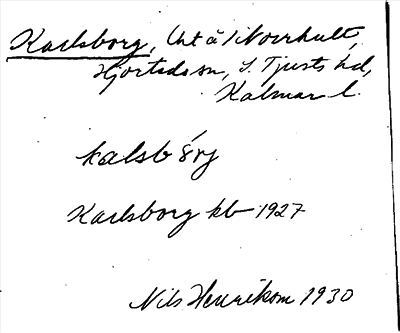 Karlsborg, Uht å Norrhult,
Hjorteds sn, S. Tjusts hd,
Kalmar l.
Karlsborg kb 1927
Nils Henrikson 1930